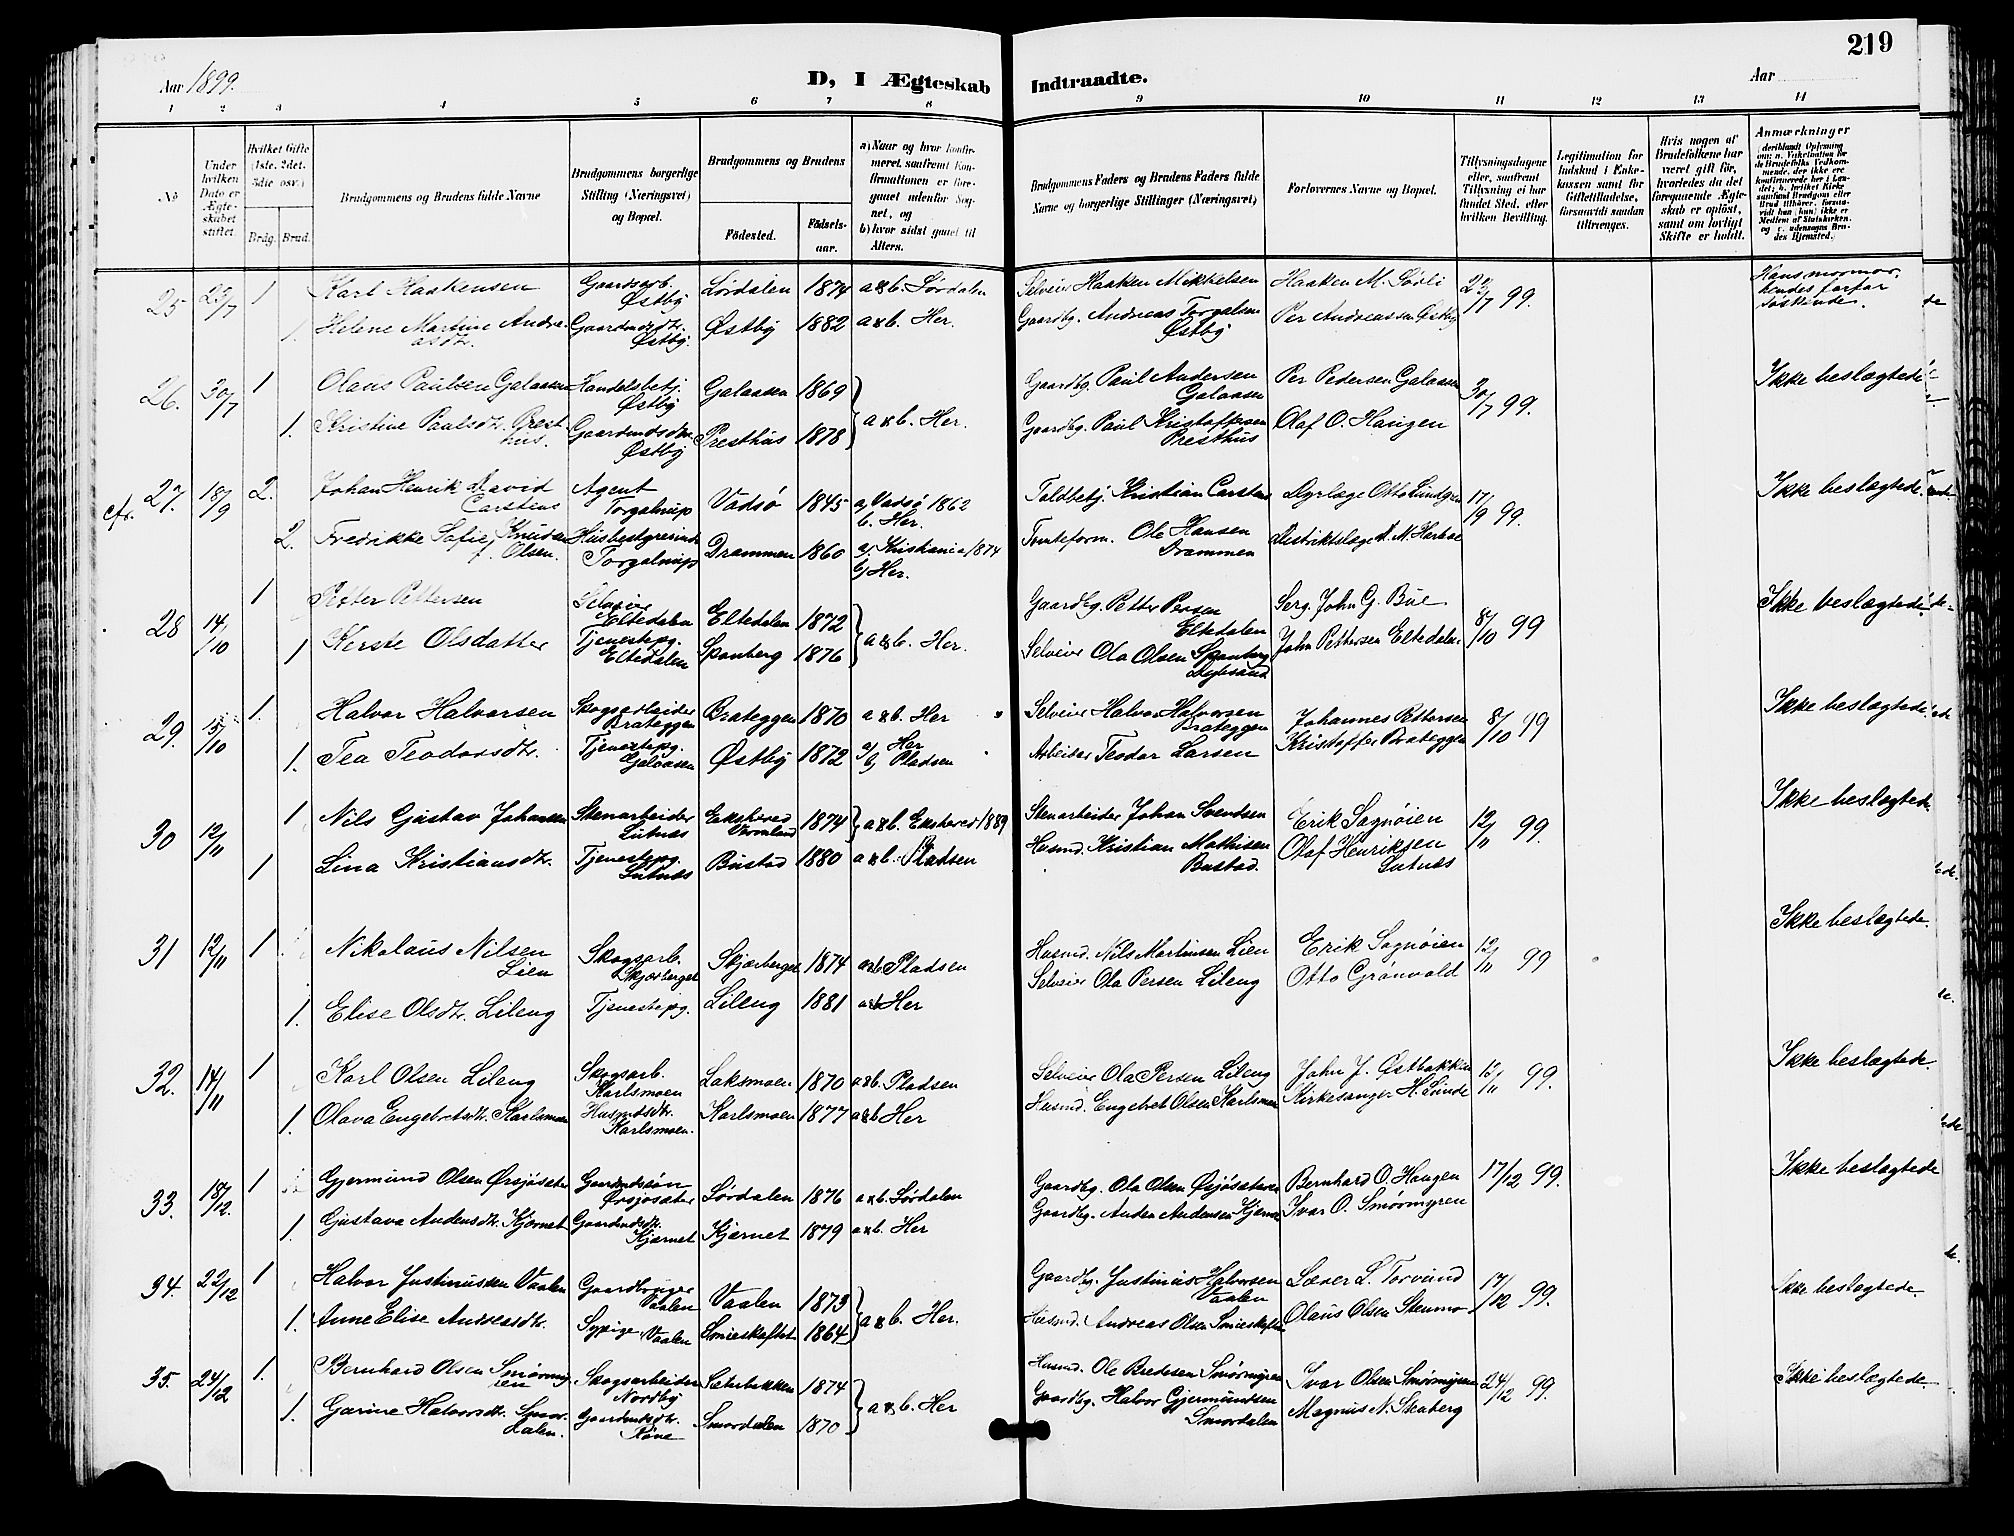 219
Aar 1899.
D, I Ægteskab Indtraadte.
Aar
1 2 3 4 5 6 7 8 9 10 11 12 13 14
No
Under hvilken Dato er Ægteskabet stiftet.
Hvilket Gifte (1ste. 2det. 3die osv.)
Brdg. Brud.
Brudgommens og Brudens fulde Navne
Brudgommens borgerlige Stilling (Næringsvei) og Bopæl.
Brudgommens og Brudens
Födested.
Födselsaar.
a) Naar og hvor konfirmeret, saafremt Konfirmationen er foregaaet udenfor Sognet, og
b) hvor sidst gaaet til Alters.
Brudgommens Faders og Brudens Faders fulde Navne og borgerlige Stillinger (Næringsvei)
Forlovernes Navne og Bopæl.
Tillysningsdagene eller, saafremt Tillysning ei har fundet Sted, efter hvilken Bevilling.
Legitimation for Indskud i Enkekassen samt for Giftetilladelse, forsaavidt saadan tiltrænges.
Hvis nogen af Brudefolkene har været gift för, hvorledes da det foregaaende Ægteskab er oplöst, samt om lovligt Skifte er holdt.
Anmærkninger
25 25/7 1 Karl Haakensen Gaardsarb. Østby Lørdalen 1874 a&b. Sørdalen Selveier Haaken Mikkelsen Haaken M. Sörli 23/7 99. Hans mormor, hendes farfar söskende.
1. Helene Martine Andreasdtr. Gaardmdsdtr. Østby. Østby 1882 a&b. Her. Gaardbg. Andreas Torgalsen Østby Per Andreassen Østby
26. 30/7 1 Olaus Paulsen Galaasen Handelsbetj. Østby Galaasen 1869 a&b. Her. Gaardbg. Paul Andersen Galaasen Per Pedersen Galaasen 30/7 99. Ikke beslægtede
1. Kristine Paulsdtr. Presthus. Gaardmdsdtr. Østby Presthus 1878 Gaardbg. Paul Kristoffersen Presthus Olaf O. Haugen
cfr. 27. 18/9 2. Johan Henrik David Carstens Agent Torgalrup Vadsø 1845 a) Vadsø 1862 b. Her. Toldbetj. Kristian Carstens Dyrlæge Otto Lindgren 17/9 99. Ikke beslægtede.
2. Fredrikke Sofie Knudsen f. Olsen. Husbestyrerinde Torgalrup Drammen 1860 a). Kristiania 1874 b) Her. Tomteform. Ole Hansen Drammen Distriktslæge A. M. Herboe
28 14/10 1 Petter Pettersen Selveier Eltedalen Eltedalen 1872 a&b. Her. Gaardbg. Petter Persen Eltedalen Serg. John G. Bue 8/10 99 Ikke beslægtede.
1 Kerste Olsdatter Tjenestepg. Eltedalen Spanberg 1876 Selveier Ola Olsen Spanberg John Pettersen Eltedalen
29. 15/10 1. Halvor Halvorsen Skogsarbeider Brateggen Brateggen 1870 a&b. Her Selveier Halvor Halvorsen Brateggen Johannes Pettersen 8/10 99 Ikke beslægtede.
1. Tea Teodorsdtr. Tjenestepg. Galaasen Østby 1872 a) Her b) Pladsen Arbeider Teodor Larsen Kristoffer Brateggen
30 12/11 1 Nils Gustav Johansen Stenarbeider Lutnæs Ekshered Värmland 1874 a&b. Ekshered 1889 Stenarbeider Johan Svendsen Erik Sagnøien 12/11 99. Ikke beslægtede.
1 Lina Kristiansdtr. Tjenestepg. Lutnæs Bustad 1880 a&b. Pladsen Husmd. Kristian Mathisen Bustad. Olaf Henriksen Lutnæs
31 12/11 1 Nikolaus Nilsen Lien Skogsarb. Skjærberget Skjærberget 1874 a&b Pladsen Husmd. Nils Martinsen Lien Erik Sagnøien 12/11 99 Ikke beslægtede.
1. Elise Olsdtr. Lileng Tjenestepg. Lileng 1881 a&b Her Selveier Ola Persen Lileng Otto Grönvald
32. 14/11 1 Karl Olsen Lileng Skogsarb. Karlsmoen Laksmoen 1870 a&b. Pladsen Selveier Ola Persen Lileng John J. Østbakken 16/11 99. Ikke beslægtede.
1. Olava Engebretsdtr. Karlsmoen Husmdsdtr. Karlsmoen. Karlsmoen 1877 a&b Her Husmd. Engebret Olsen Karlsmoen Kirkesanger H. Lunde
33. 18/12. 1 Gjermund Olsen Ørsjøsæter Gaardmdssön Ørsjøsæter Sørdalen 1876 a&b. Sørdalen Gaardbg. Ola Olsen Øsjøsæteren Bernhard O. Haugen 17/12 99. Ikke beslægtede
1. Gustava Andersdtr. Kjærnet Gaardmdsdtr. Kjærnet Kjærnet 1879 a&b. Her Gaardbg. Anders Andersen Kjærnet Ivar O. Smørmyren
34. 22/12 1 Halvor Justinussen Vaalen Gaardbruger Vaalen Vaalen 1873 a&b. Her. Gaardbg. Justinus Halvorsen Vaalen Lærer L. Torvund 17/12 99. Ikke beslægtede.
1. Anne Elise Andreasdtr. Sypige Vaalen Smieskaftet 1864 Husmd. Andreas Olsen Smieskaftet Olaus Olsen Stenmo
35. 24/12 1. Bernhard Olsen Smørmyren Skogsarbeider Nordby Sæterbakken 1874 a&b. Her Husmd. Ole Bredesen Smørmyren Ivar Olsen Smørmyren 24/12 99. Ikke beslægtede.
1. Gurine Halvorsdtr. Smordalen. Gaardmdsdtr. Smordalen 1870 Gaardbg. Halvor Gjermundsen Smordalen Magnus N. Skaberg